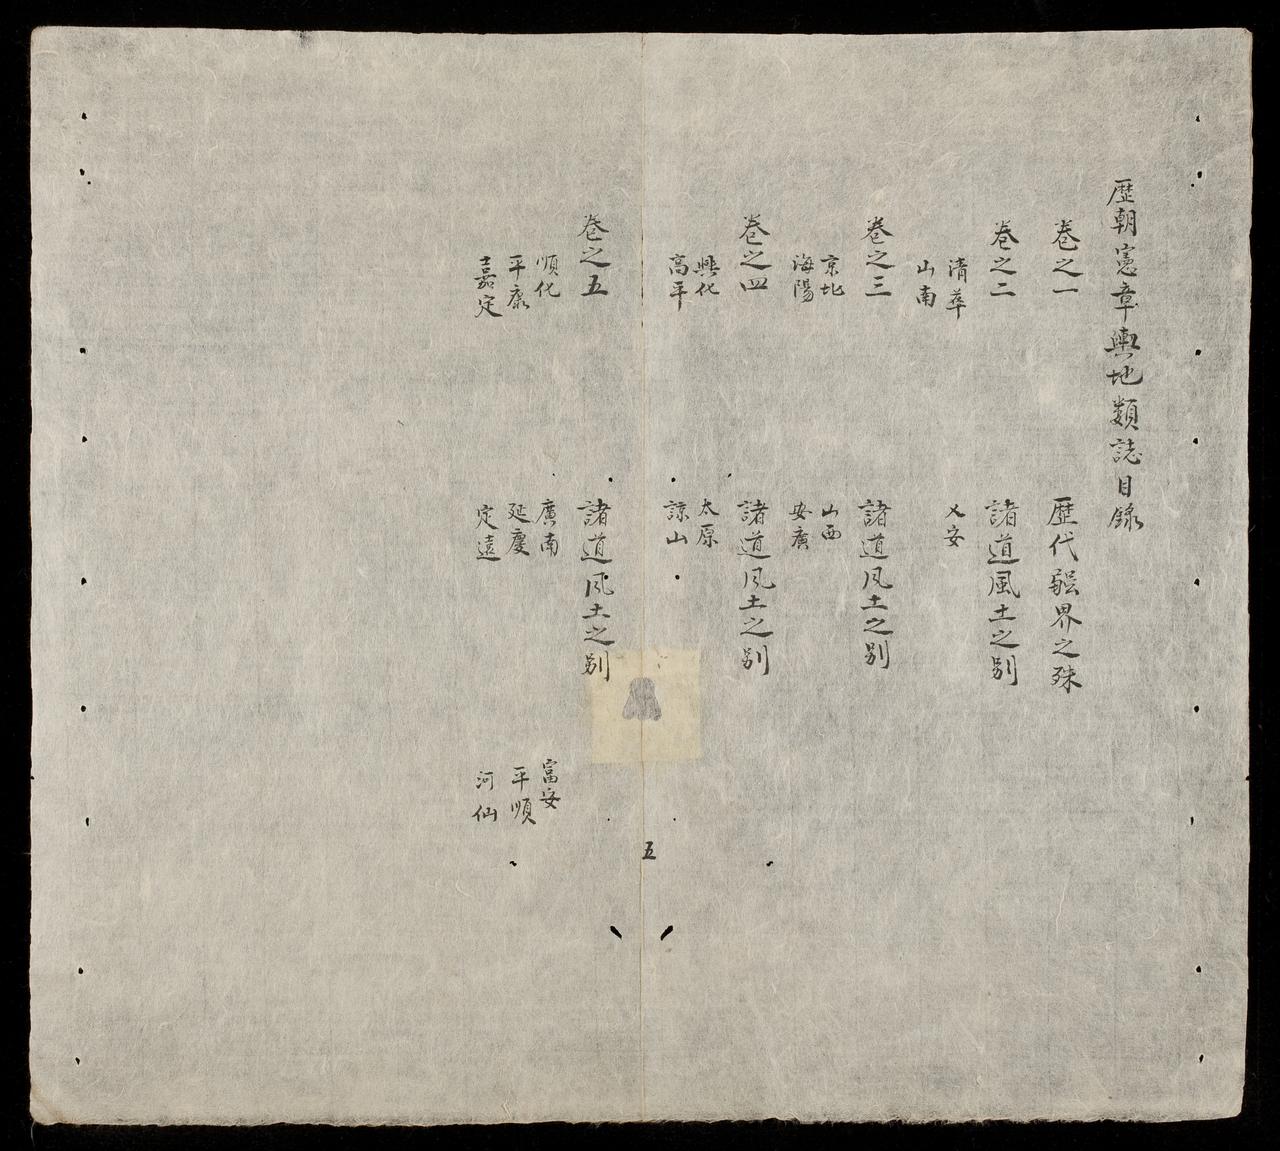 歴朝憲章輿地類誌目錄
卷之一 歴代疆界之殊
卷之二 諸道風土之別
清華 乂安
山南
卷之三 諸道风土之别
京北 山西
海陽 安廣
卷之四 諸道风土之别
興化 太原
高平 諒山
卷之五 諸道风土之别
順化 廣南 富安
平康 延慶 平順
嘉定 定遠 河仙
五